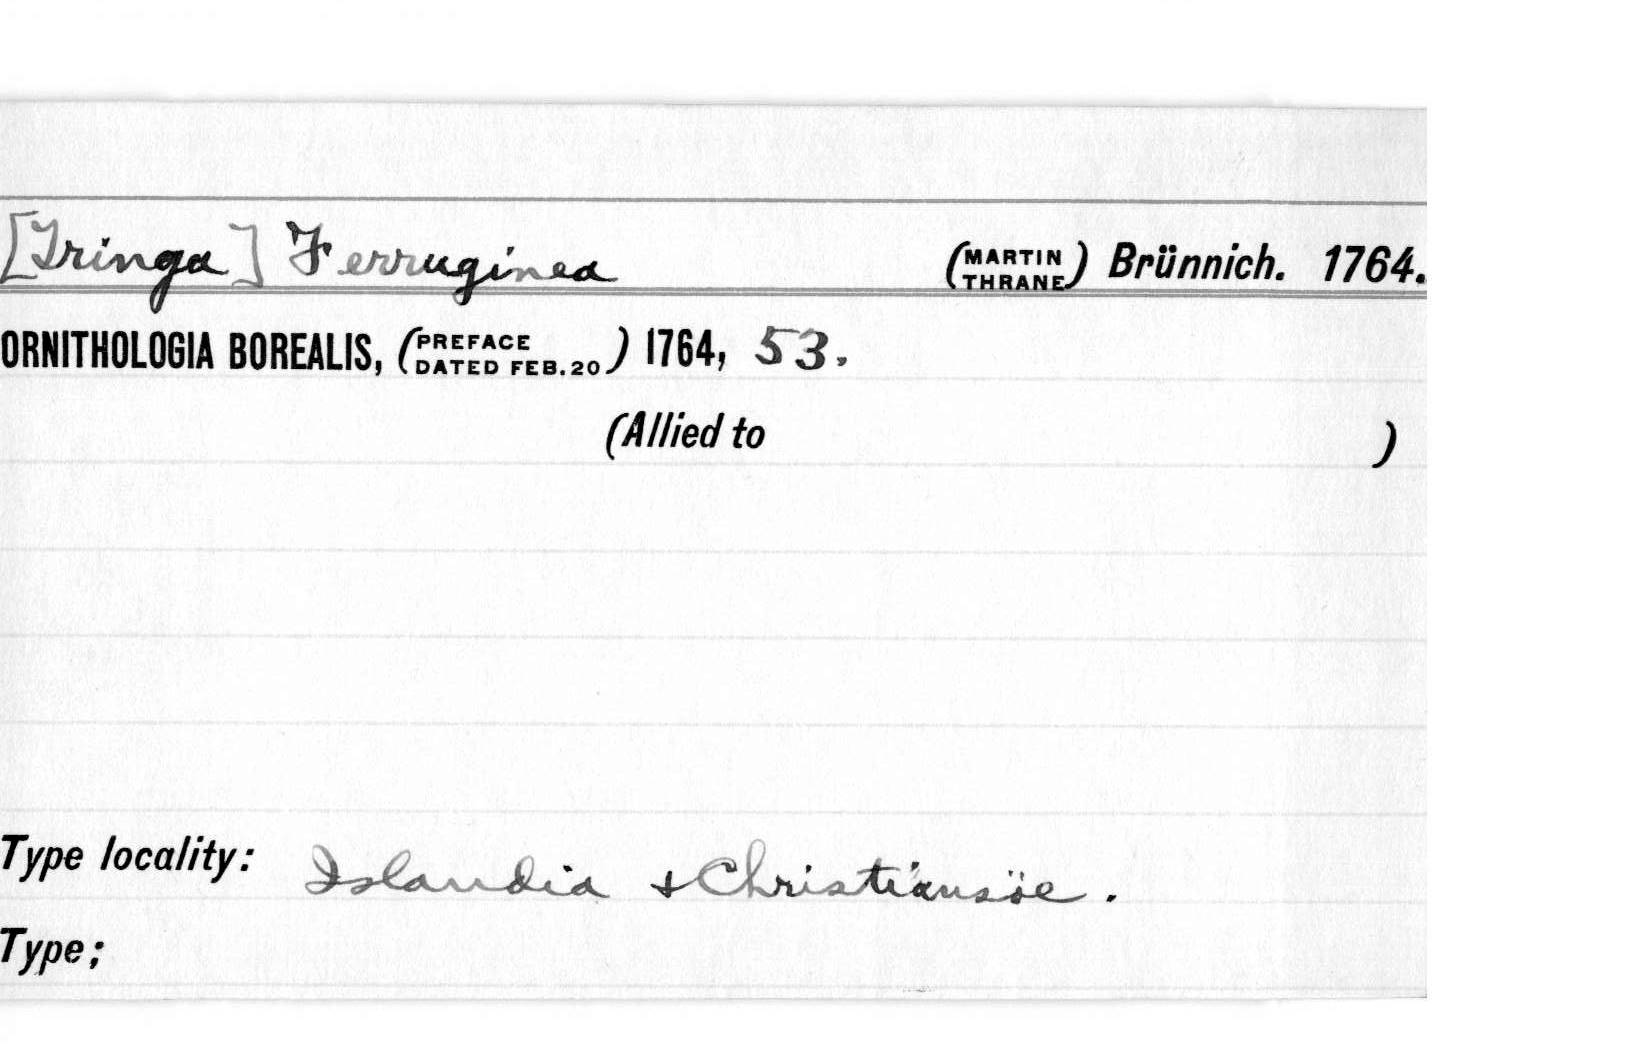 [Tringa] Ferruginea (MARTIN THRANE) Brünnich. 1764.
ORNITHOLOGIA BOREALIS, (PREFACE DATED FEB. 20) 1764, 53.
(Allied to )
Type locality: Islandia + Christiansöe.
Type;